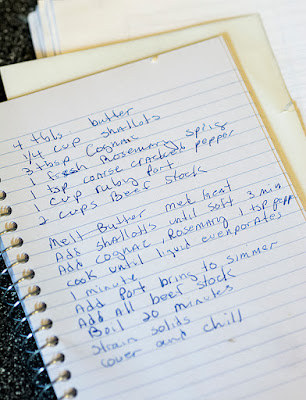 4 tbls. butter
1/4 cup shallots
3 tbsp Cognac
1 fresh Rosemary sprig
1 tsp coarse cracked pepper
1 cup ruby Port
2 cups Beef Stock
Melt Butter med heat
Add shallots until soft 3 min
Add cognac, Rosemary 1 tsp pepp
cook until liquid evenporates
1 minute
Add Port bring to simmer
Add all beef stock
Boil 20 minutes
strain solids
cover and chill